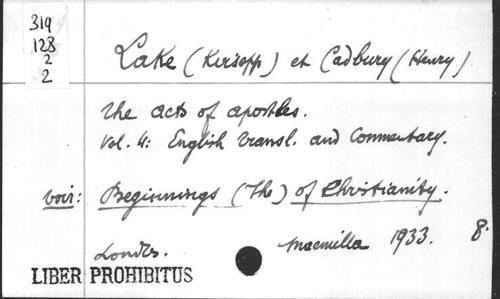 319
128
2
2
Lake (Kirsopp) et Cadbury (Henry).
The acts of apostles.
Vol. 4: English transl. and Commentary.
voir: Beginnings (The) of Christianity.
Londres. Macmilla 1933. 8.
LIBER PROHIBITUS